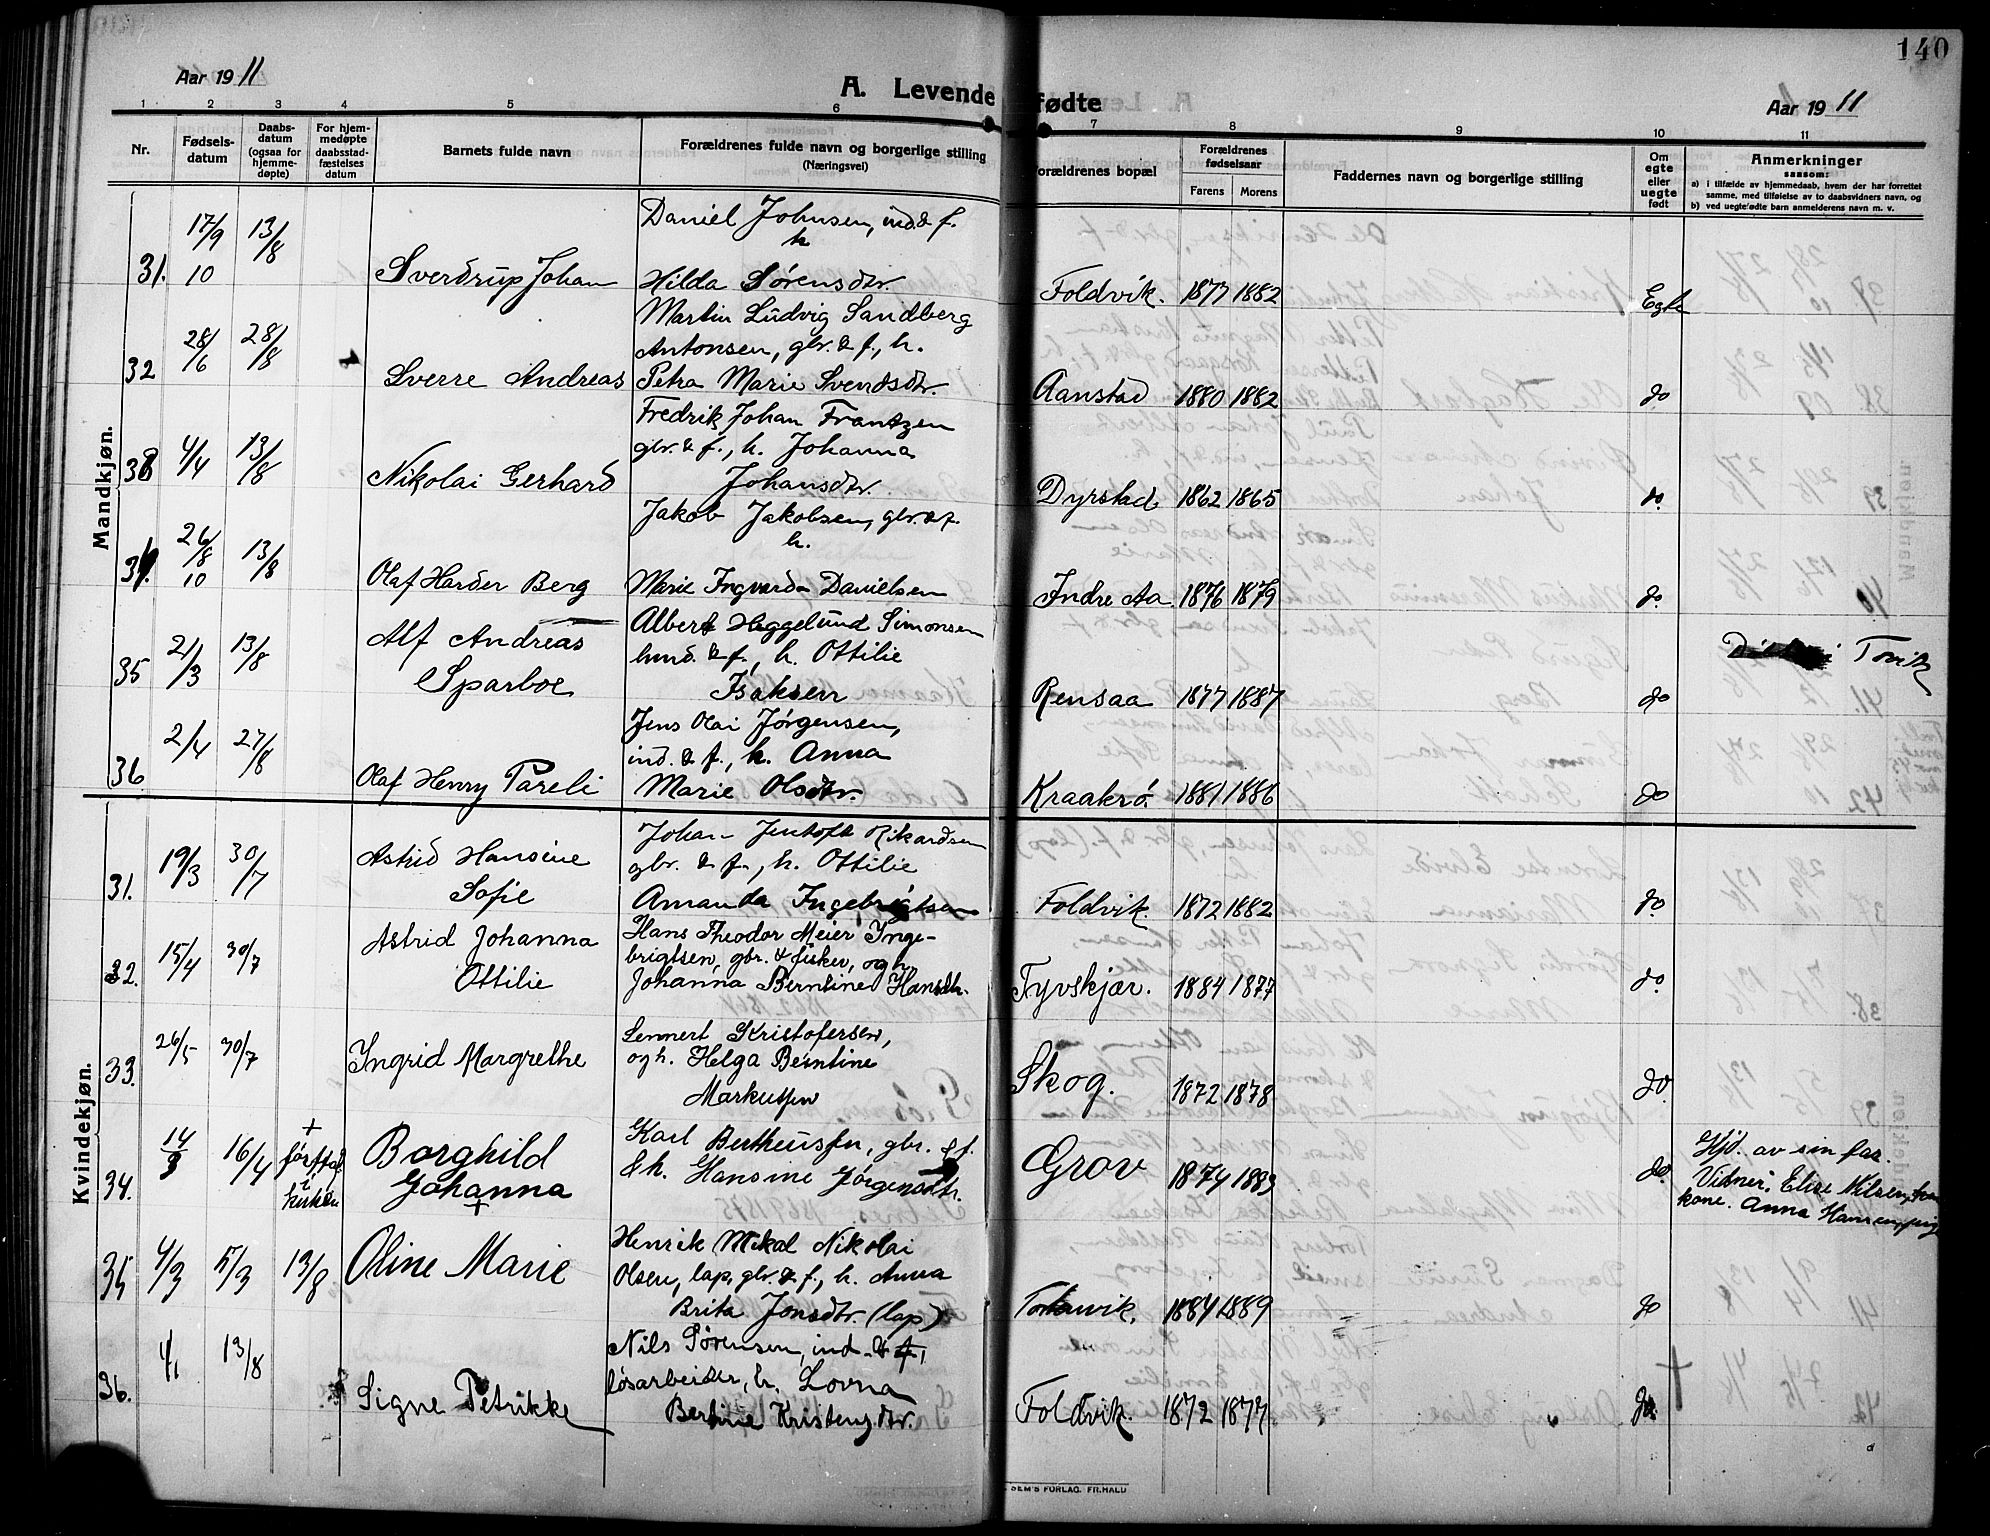 140
Aar 1911
A. Levende fødte
Aar 1911
1 2 3 4 5 6 7 8 9 10 11
Nr.
Fødsels-
datum
Daabs-
datum
(ogsaa for
hjemme-
døpte)
For hjem-
medøpte
daabsstad-
fæstelses
datum
Barnets fulde navn
Forældrenes fulde navn og borgerlige stilling
(Næringsvei)
Forældrenes bopæl
Forældrenes
fødselsaar
Farens Morens
Faddernes navn og borgerlige stilling
Om
egte
eller
uegte
født
Anmerkninger
saasom:
a) i tilfælde av hjemmedaab, hvem der har forrettet
samme, med tilføielse av to daabsvidners navn, og
b) ved uegtefødte barn anmelderens navn m. v.
Mandkjøn.
17/9 13/8 Daniel Johnsen, ind. & f.
h.
31. 10 Sverdrup Johan Hilda Sørensdtr. Foldvik. 1877 1882 Egte
Martin Ludvig Sandberg
28/6 28/8 Antonsen, gbr. & f., h.
32 Sverre Andreas Petra Marie Svendsdtr. Aanstad 1880 1882 do
Fredrik Johan Frantzen
33 4/4 13/8 gbr. & f., h. Johanna
Nikolai Gerhard Johansdtr. Dyrstad 1862 1865 do.
Jakob Jakobsen, gbr. & f.
26/8 13/8 h.
34. 10 Olaf Harder Berg Marie Ingvarda Danielsen Indre Aa. 1876 1879 do.
Albert Heggelund Simonsen
21/3 13/8 Alf Andreas hmd. & f., h. Ottilie
35 Sparboe Isaksen Rensaa 1877 1887 do Tovik
Jens Olai Jørgensen,
2/4 27/8 ind. & f., h. Anna
36. Olaf Henry Pareli Marie Olsdtr. Kraakrø. 1881 1886 do
Kvindekjøn.
Johan Jentoft Rikardsen
19/3 30/7 Astrid Hansine gbr. & f., h. Ottilie
31. Sofie Amanda Ingebrigtsen Foldvik. 1872 1882 do.
Hans Theodor Meier Inge-
15/4 30/7 Astrid Johanna brigtsen, gbr. & fisker, og h.
32. Ottilie Johanna Berntine Hansdtr. Tyvskjær. 1884 1877 do.
26/5 30/7 Lennert Kristofersen,
33. Ingrid Margrethe og h. Helga Berntine
Markussen Skog. 1872 1878 do.
14/3 16/4 + Borghild Karl Bertheussen, gbr. & f.
34. i kirken Johanna & h. Hansine Jørgensdtr. Grov 1874 1883 do.
+
Hjd. av sin far.
Vidner: Elise Nilsen,
kone. Anna Hansen, pige
Henrik Mikal Nikolai
35 4/3 5/3 13/8 Oline Marie Olsen, lap, gbr. & f., h. Anna
Brita Jonsdtr. (lap) 1884 1889 do
Nils Sørensen, ind. & f.,
4/1 13/8 løsarbeider, h. Lovna
36. Signe Petrikke Bertine Kristensdtr. Foldvik. 1872 1877 do.
SEM'S FORLAG. FR.HALD